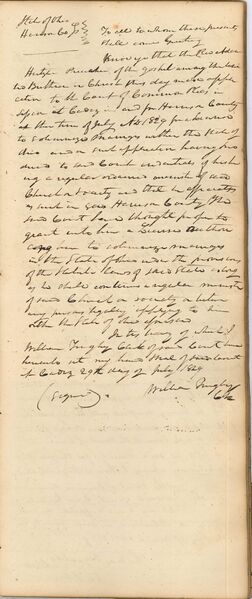 State of Ohio
Harrison Co SS To all to whom these presents
shall come Greeting
Know ye that
Preacher of the gospel among the
Brethren in Christ this day made appli
cation to the Court of Common Pleas in
session at Cadiz in and for Harrison County
at their term of July AD 1829 for a license
to solemnize marriages within the State of
Ohio and on such application having pro
duced to said Court credentials of his be
ing a regular ordained minister of said
Church or Society and that he officiates
as such in said Harrison County The
said Court have thought proper to
grant unto him a License author
izing him to solemnize marriages
in the State of Ohio under the provisions
of the Statute Laws of said State so long
as he shall continue a regular minister
of said Church or society
any persons legally applying to him
within the State of Ohio aforesaid
In testimony of which I
William Tingley Clerk of said Court have
hereunto set my hand & Seal of said Court
at Cadiz 29th day of July 1829
William Tingley
Clk